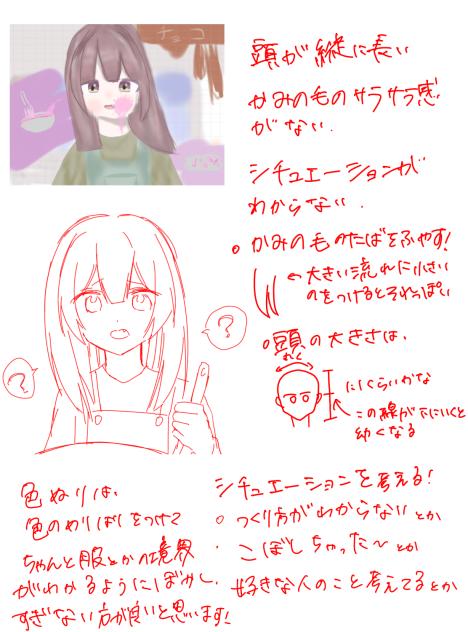 チョコ
頭が縦に長い
かみの毛のサラサラ感
がない.
シチュエーションが
わからない.
かみの毛のたばをふやす!
←大きい流れに小さい
のをつけるとそれっぽい
頭の大きさは.
?
?
こにくらいかな
この線が下にいくと
幼くなる
色ぬりは、
色のめりはしをつけて
ちゃんと服とかの境界
がわかるようにぼかし
すぎない方が良いと思います!
シチュエーションを考える!
つくり方がわからないとか
こぼしちゃった〜とか
好きな人のこと考えてるとか